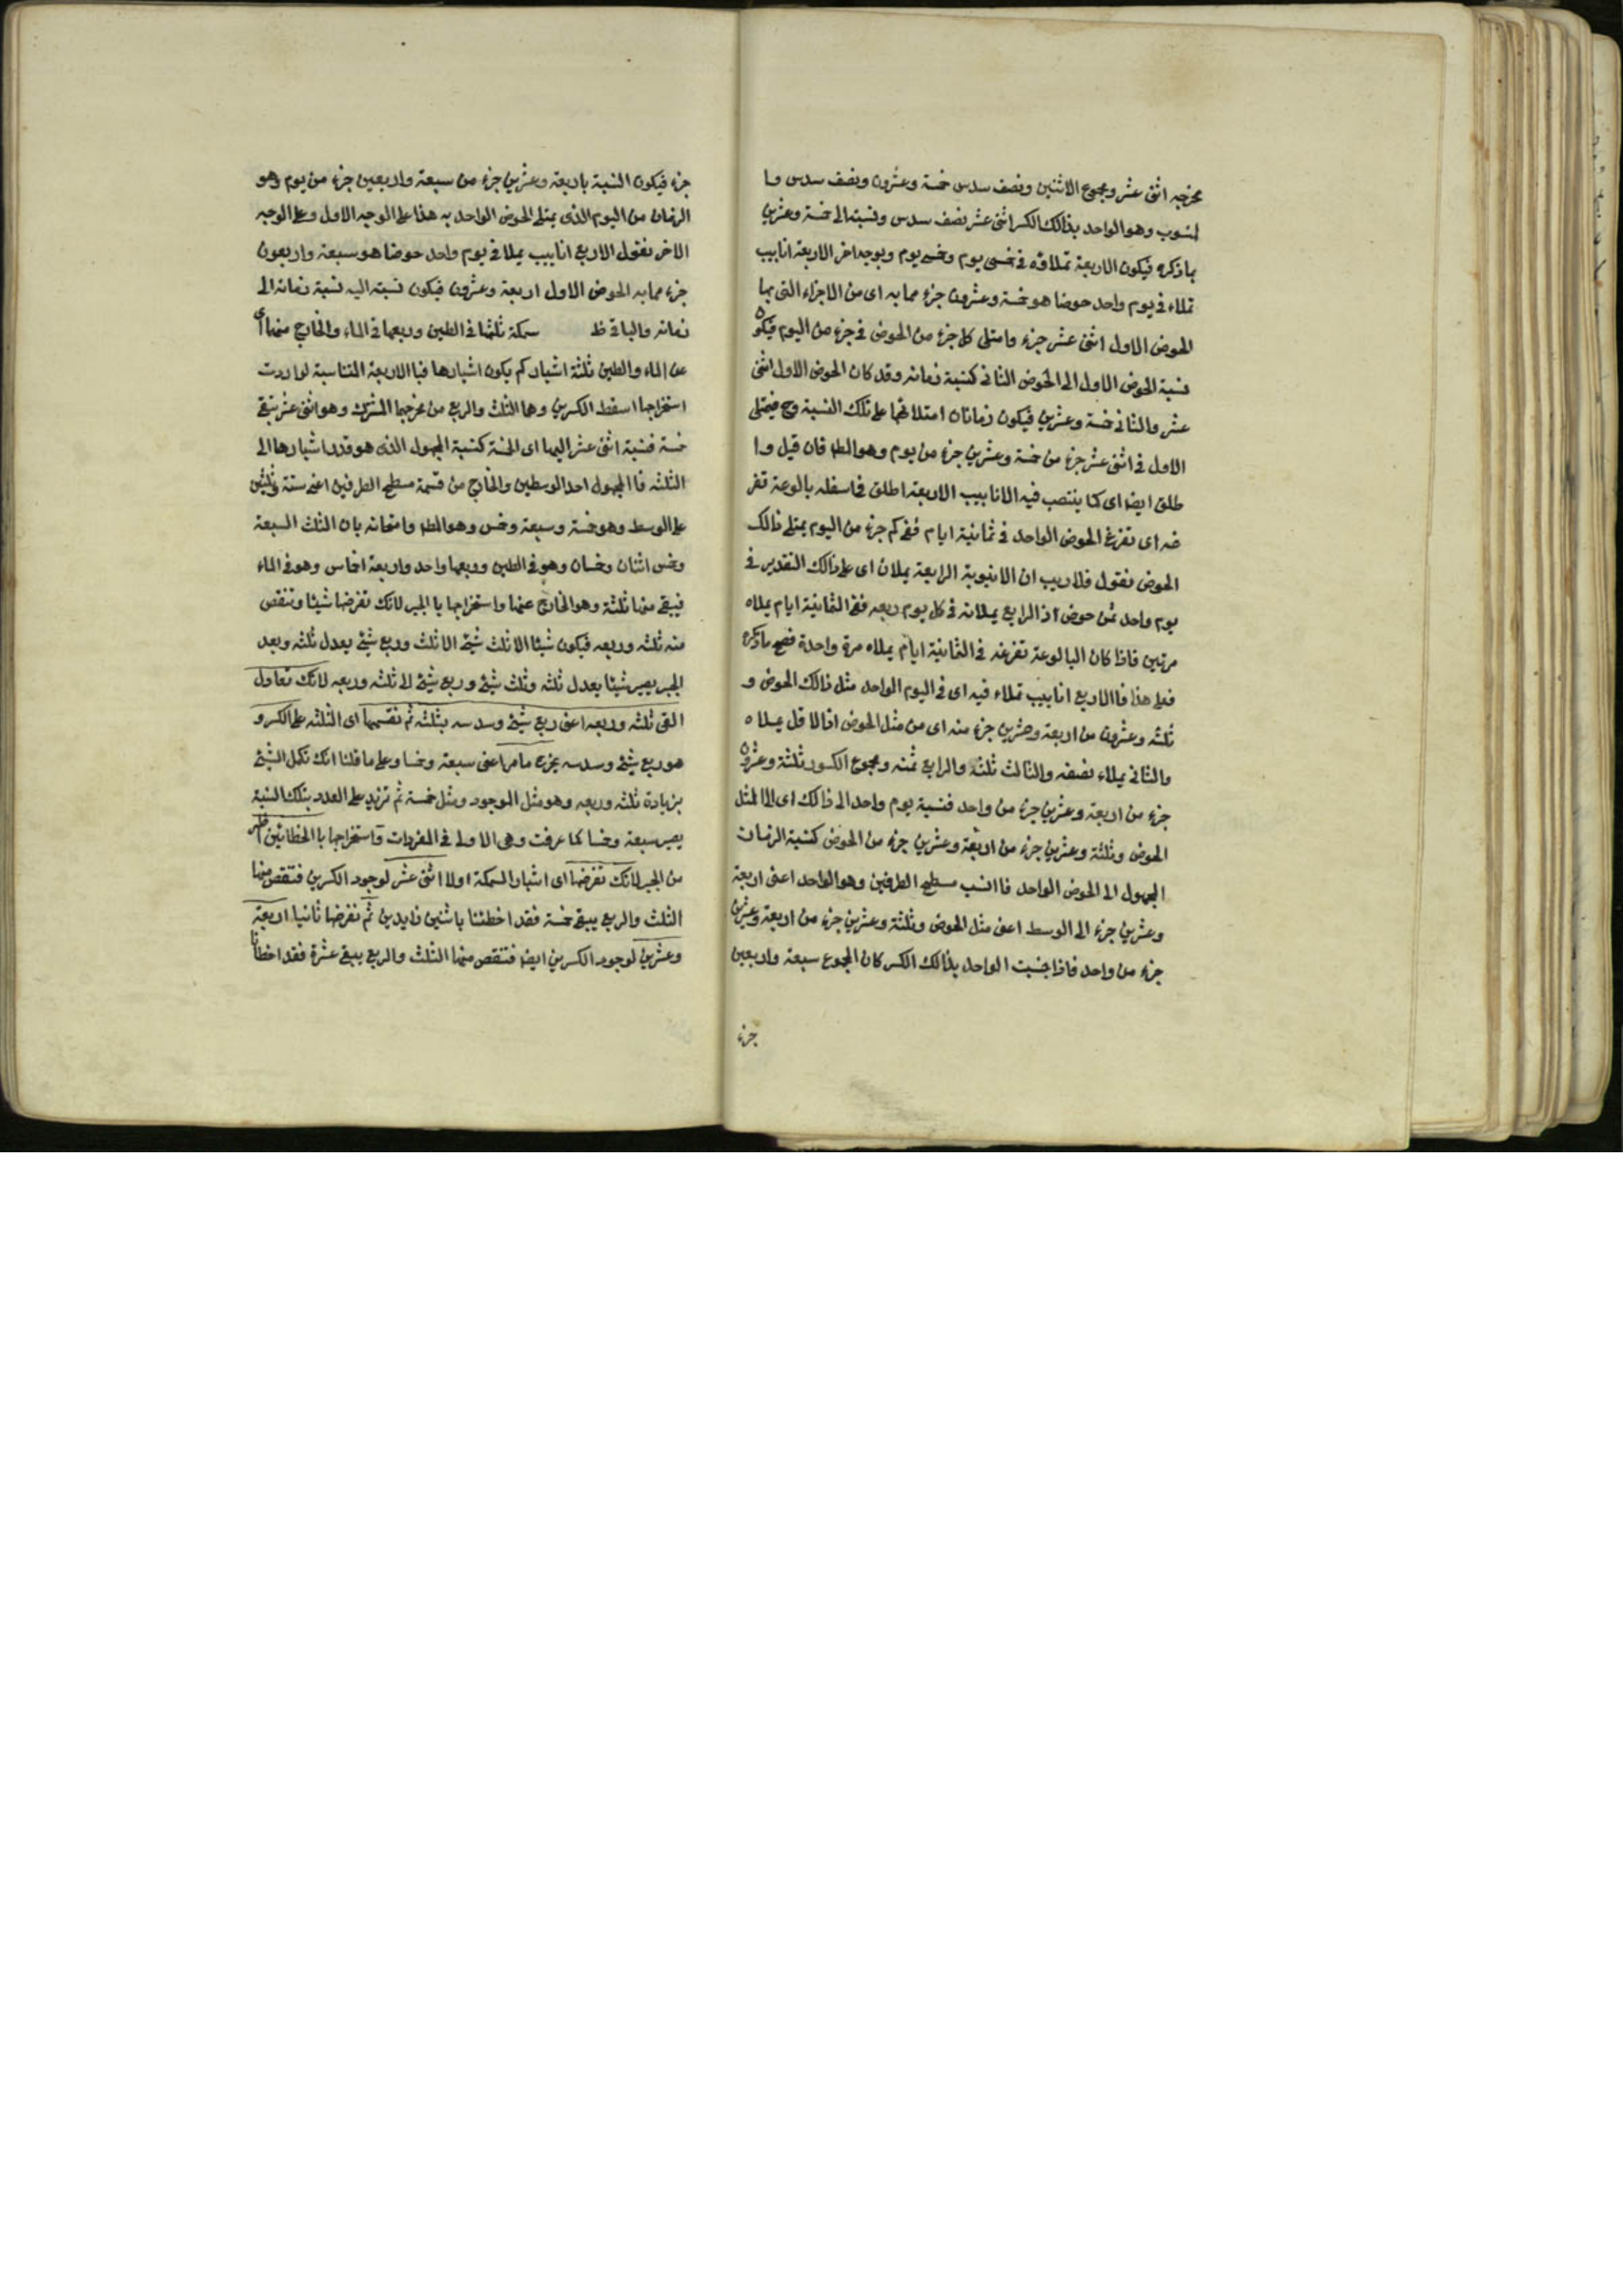 مخرجه اثنى عشر ومجموع الاثنين ونصف سدس خمسة وعشرون ونصف سدس وا
لمنسوب وهو الواحد بذالك الكسر اثنى عشر نصف سدس ونسبته الى خمسة وعشرين
بما ذكره فيكون الاربعة تملاؤه فى خمسى يوم وخمس يوم وبوجه اخر الاربعة انابيب
تملاء فى يوم واحد حوضا هو خمسة وعشرون جزء مما به اى من الاجزاء التى بها
الحوض الاول اثنى عشر جزء وامتلى كل جزء من الحوض فى جزء من اليوم فيكون
نسبة الحوض الاول الى الحوض الثانى كنسبة زمانه وقد كان الحوض الاول اثنى
عشر والثانى خمسة وعشرين فيكون زمانان امتلائهما على تلك النسبة وح فيمتلى
الاول فى اثنى عشر جزء من خمسة وعشرين جزء من يوم وهو المط فان قيل وا
طلق ايضا اى كما ينتصب فيه الانابيب الاربعة اطلق فى اسفله بالوعة تفر
غه اى تفرغ الحوض الواحد فى ثمانية ايام ففى كم جزء من اليوم يمتلى ذالك
الحوض فنقول فلا ريب ان الانبوبة الرابعة يملان اى على ذالك التقدير فى
يوم واحد ثمن حوض اذ الرابع يملانه فى كل يوم ربعه ففى الثمانية ايام يملاه
مرتين فاذا كان البالوعة تفرغه فى الثمانية ايام يملاه مرة واحدة فصح ما ذكره
فعلى هذا فاالاربع انابيب تملاء فيه اى فى اليوم الواحد مثل ذالك الحوض و
ثلثه وعشرون من اربعة وعشرين جزء منه اى من مثل الحوض اذ الاول يملاه
والثانى يملاء نصفه والثالث ثلثه والرابع ثمنه ومجموع الكسور ثلثة وعشرون
جزء من اربعة وعشرين جزء من واحد فنسبة يوم واحد الى ذالك اى الى المثل
الحوض وثلثة وعشرين جزء من اربعة وعشرين جزء من الحوض كنسبة الزمان
المجهول الى الحوض الواحد فاانسب مسطح الطرفين وهو الواحد اعنى اربعة
وعشرين جزء الى الوسط اعنى مثل الحوض وثلثة وعشرين جزء من اربعة وعشرين
جزء من واحد فاذا جنست الواحد بذالك الكسر كان المجموع سبعة واربعين
جزء
جزء فيكون النسبة باربعة وعشرين جزء من سبعة واربعين جزء من يوم وهو
الزمان من اليوم الذى يمتلى الحوض الواحد به هذا على الوجه الاول وعلى الوجه
الاخر نقول الاربع انابيب يملا فى يوم واحد حوضا هو سبعة واربعون
جزء مما به الحوض الاول اربعة وعشرون فيكون نسبته اليه نسبة زمانه الى
زمانه والباقى ظ سمكة ثلثها فى الطين وربعها فى الماء والخارج منها اى
عن الماء والطين ثلثة اشبار كم يكون اشبارها فبا الاربعة المتناسبة لو اردت
استخراجها اسقط الكسرين وهما الثلث والربع من مخرجهما المشترك وهو اثنى عشر يبقى
خمسة فنسبة اثنى عشر اليها اى الخمسة كنسبة المجهول الذى هو قدر اشبارها الى
الثلثه فاا المجهول احد الوسطين والخارج من قسمة مسطح الطرفين اعنى ستة وثلثين
على الوسط وهو خمسة وسبعة وخمس وهو المط وامتحانه بان الثلث السبعة
وخمس اثنان وخمسان وهو فى الطين وربعها واحد واربعة اخماس وهو فى الماء
فيبقى منها ثلثة وهو الخارج عنها واستخراجها باالجبر لانك تفرضها شيئا وتنقص
منه ثلثه وربعه فيكون شيئا الا ثلث شيئ الا ثلث وربع شيئ يعدل ثلثه وبعد
الجبر يصير شيئا يعدل ثلثه وثلث شيئ وربع شيئ الا ثلثه وربعه لانك تعاول
القى ثلثه وربعه اعنى ربع شيئ وسدسه بثلثه ثم تقسمها اى الثلثه على الكسر و
هو ربع شيئ وسدسه يخرج ما مر اعنى سبعة وخمسا وعلى ما قلنا انك تكمل الشيئ
بزيادة ثلثه وربعه وهو مثل الموجود ومثل خمسة ثم تزيد على العدد بتلك النسبة
يصير سبعة وخمسا كما عرفت وهى الاولى فى المفردات واستخراجها باالخطائين اظهر
من الجبر لانك تفرضها اى اشبار السمكة اولا اثنى عشر لوجود الكسرين فتنقص منها
الثلث والربع يبقى خمسة فقد اخطئنا باثنين زايدين ثم نفرضها ثانيا اربعة
وعشرين لوجود الكسرين ايضا فتنقص منها الثلث والربع يبقى عشرة فقد اخطأنا